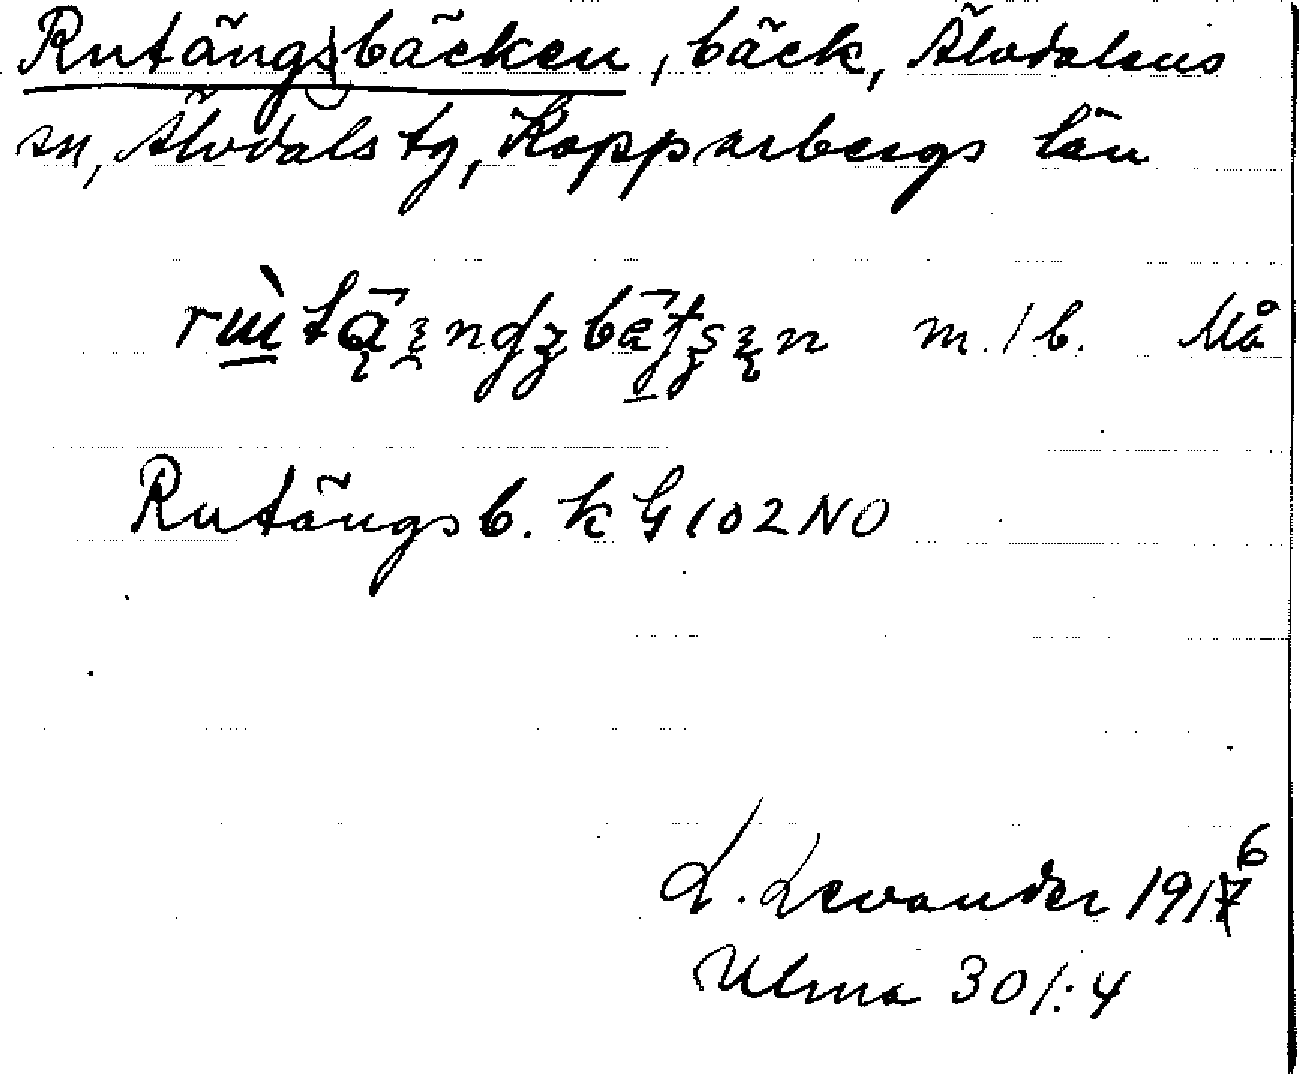 Rutängsbäcken, bäck, Älvdalens
sn, Älvdals tg, Kopparbergs län
m. / b. Må
Rutängsb. k G 102 NO
L. Levander 1916
Ulma 301:4